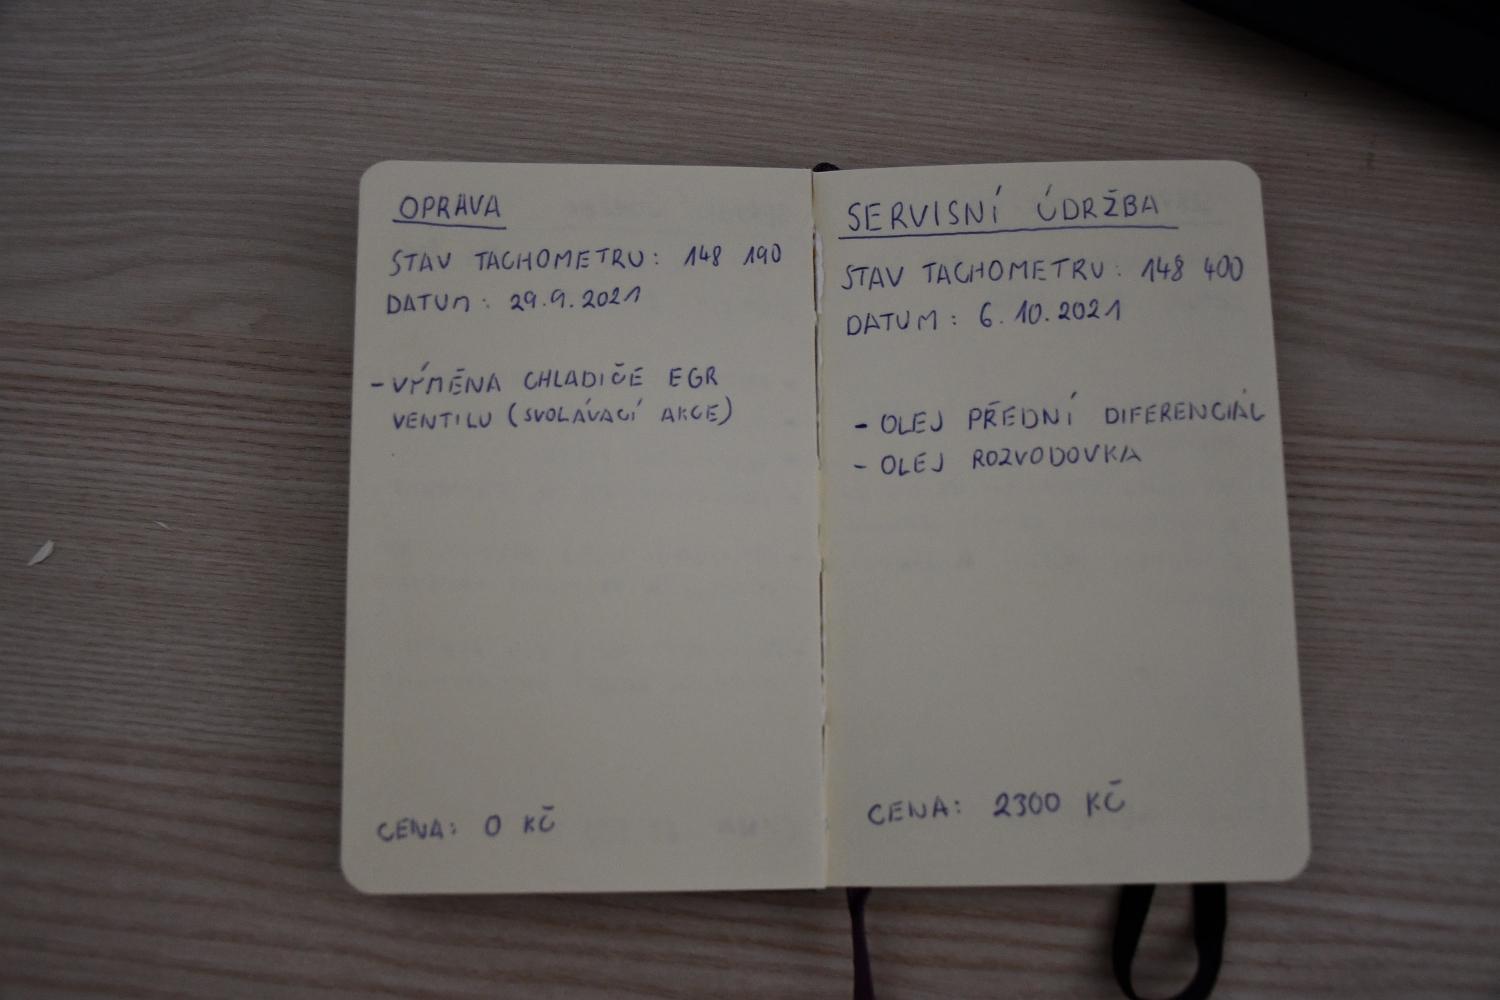 OPRAVA
STAV TACHOMETRU: 148 190
DATUM: 29.9.2021
- VÝMĚNA CHLADIČE EGR
VENTILU (SVOLÁVACÍ AKCE)
CENA: 0 KČ
SERVISNÍ ÚDRŽBA
STAV TACHOMETRU: 148 400
DATUM: 6.10.2021
- OLEJ PŘEDNÍ DIFERENCIÁL
- OLEJ ROZVODOVKA
CENA: 2300 KČ